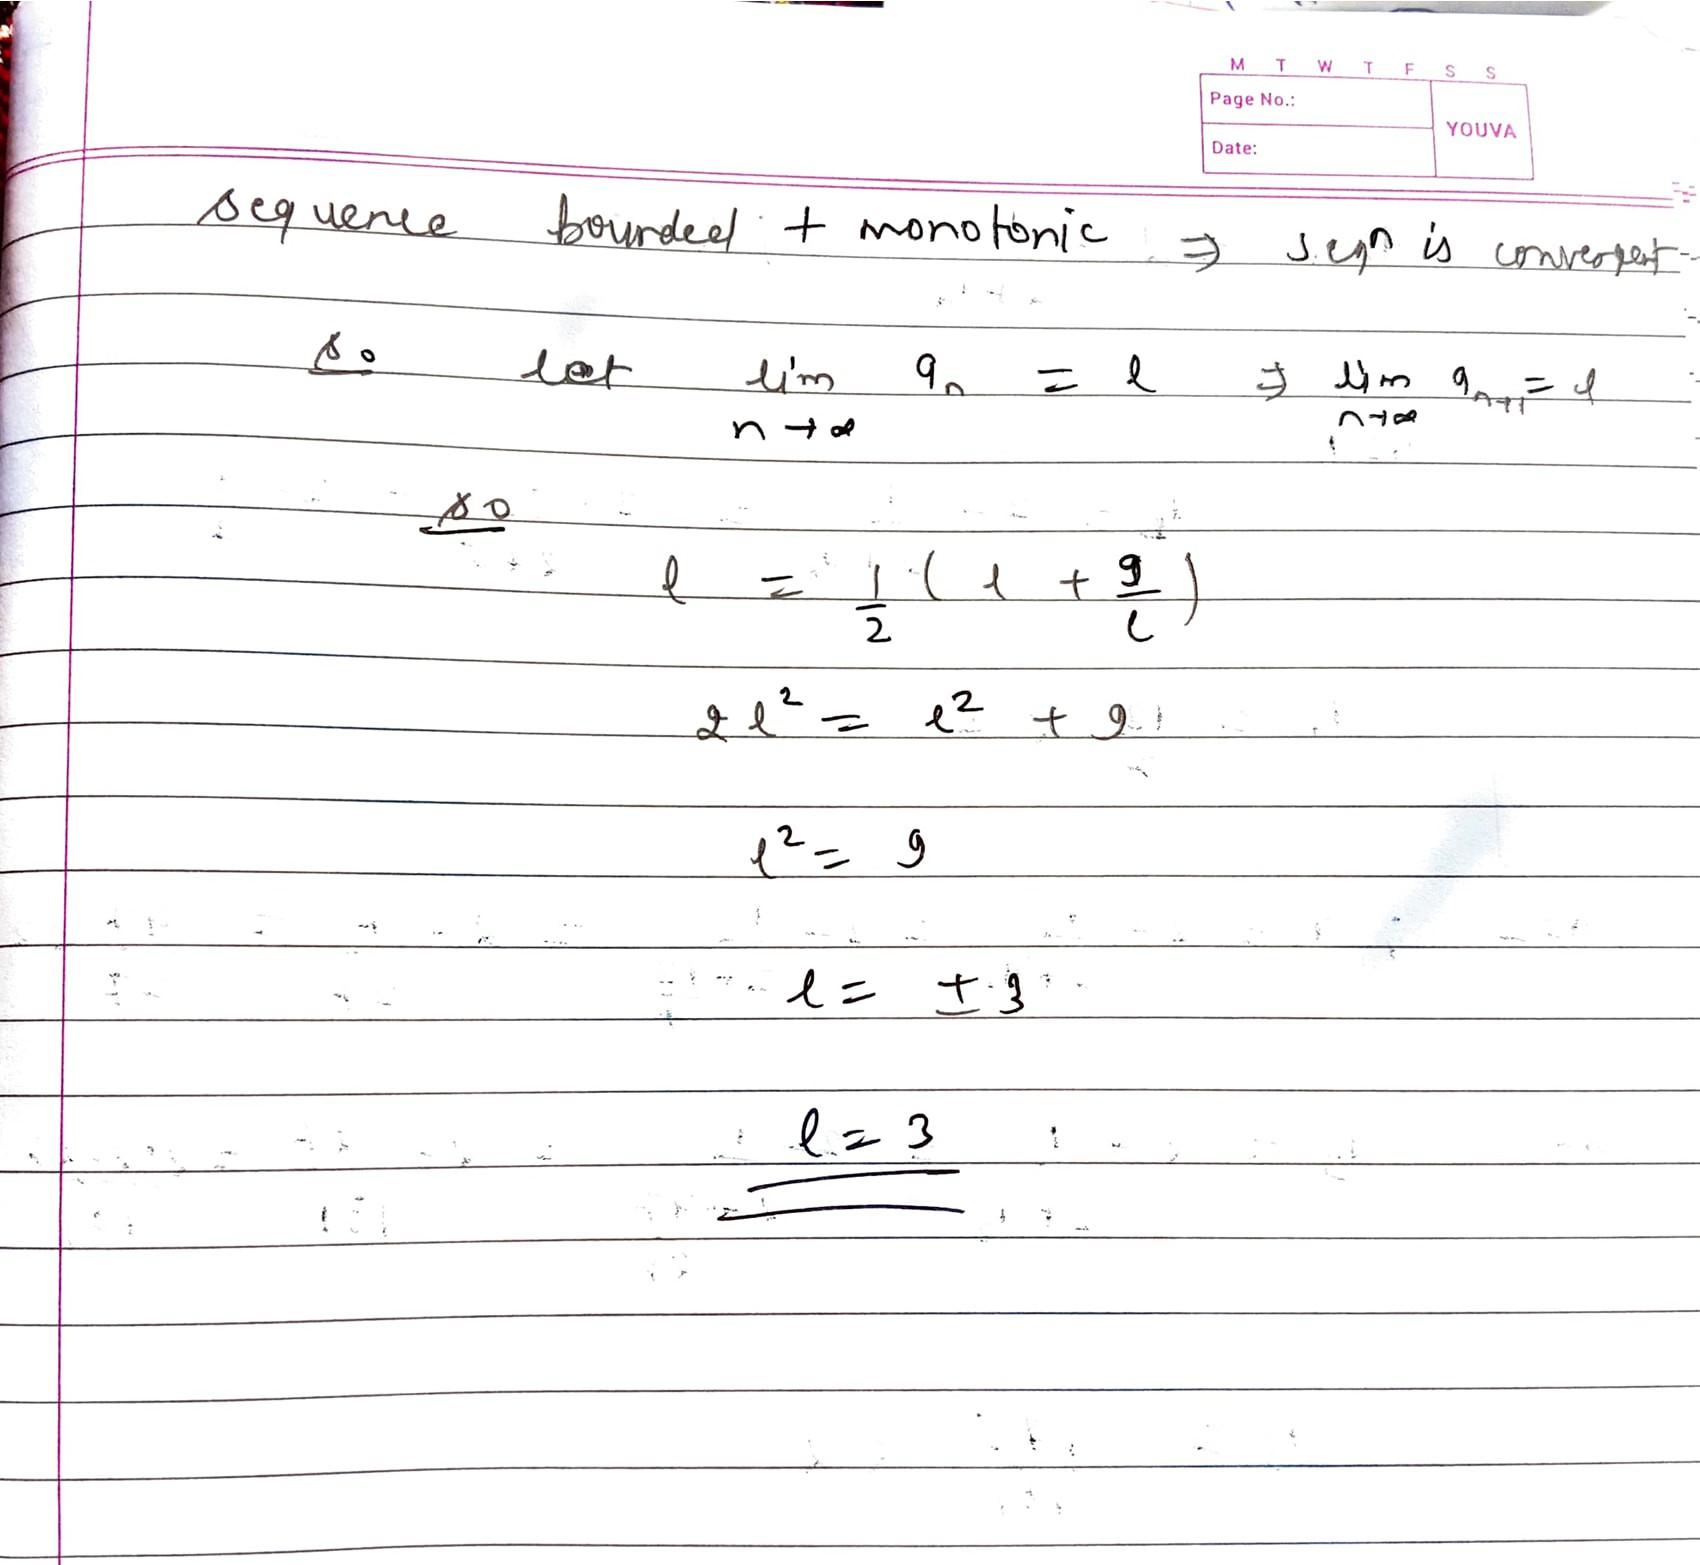 M T W T F S S
Page No.:
YOUVA
Date:
sequence bounded + monotonic ⇒ seqn is convergent
so let lim an = l ⇒ lim an+1 = l
n→∞ n→∞
so
l = 1/2 (l + 9/l)
2l² = l² + 9
l² = 9
l = ± 3
l = 3